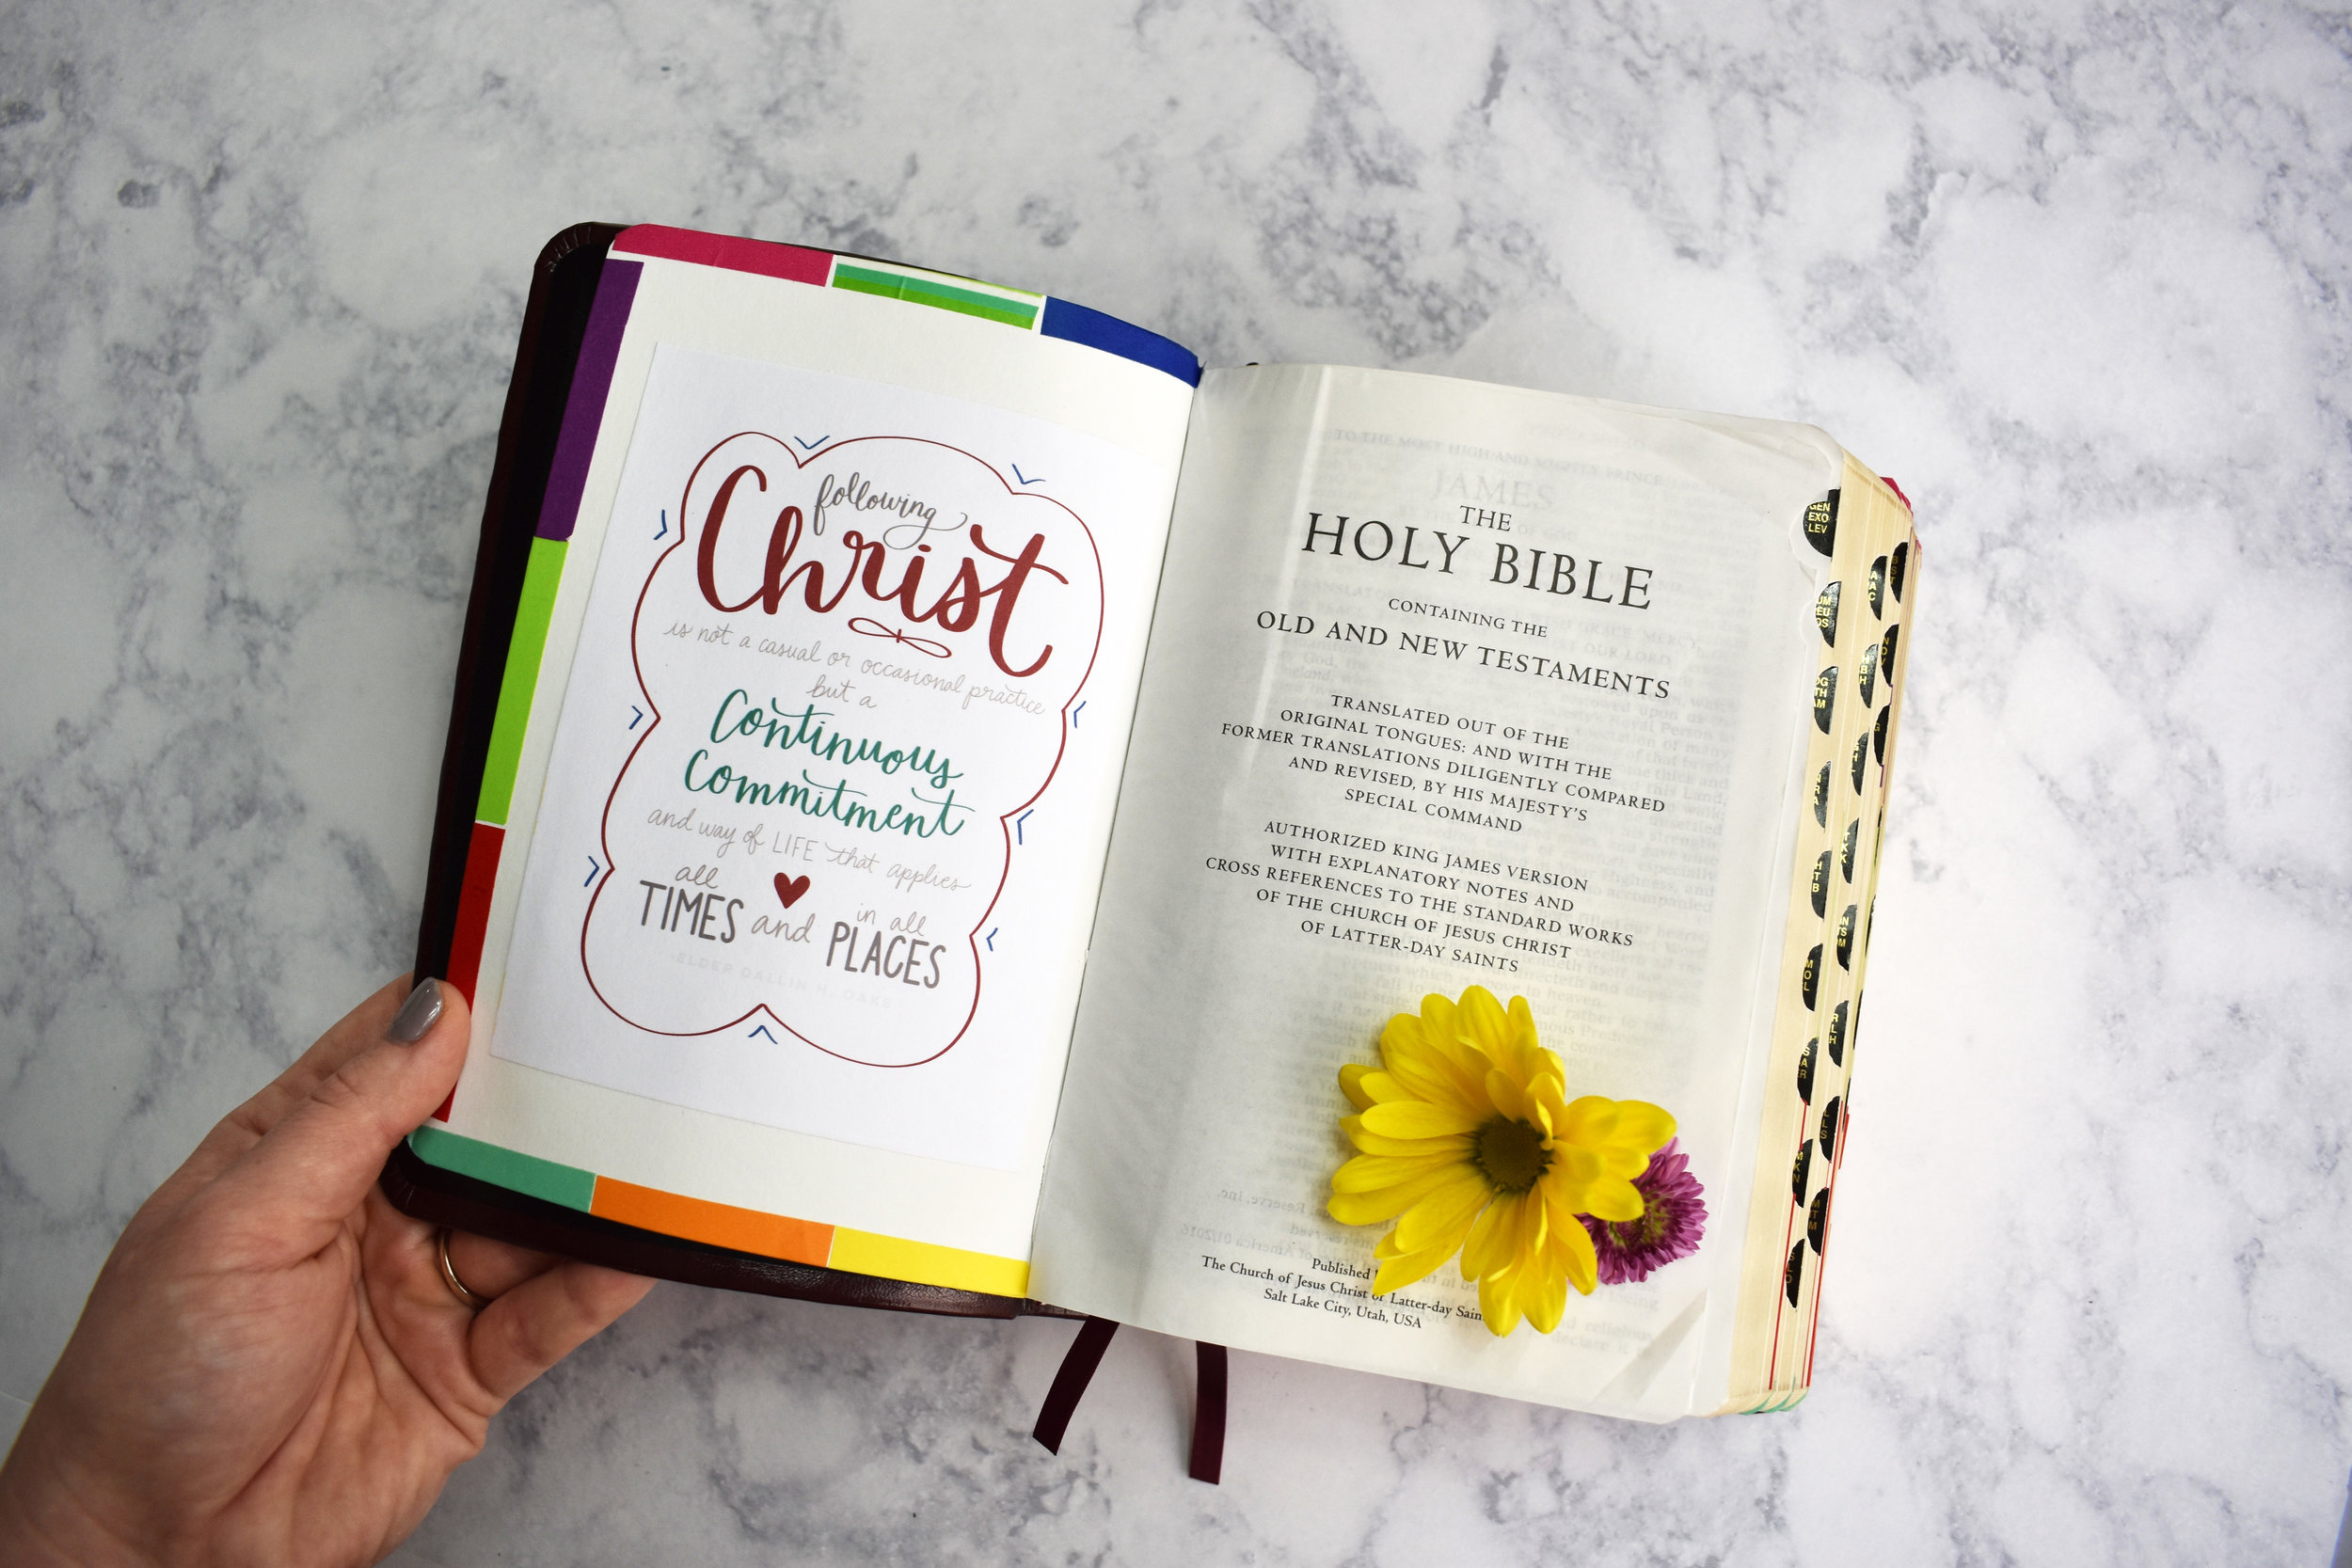 following
Christ
is not a casual or occasional practice
but a
Continuous
Commitment
and way of LIFE that applies
all
TIMES and in all
PLACES
-ELDER DALLIN H. OAKS
THE
HOLY BIBLE
CONTAINING THE
OLD AND NEW TESTAMENTS
TRANSLATED OUT OF THE
ORIGINAL TONGUES: AND WITH THE
FORMER TRANSLATIONS DILIGENTLY COMPARED
AND REVISED, BY HIS MAJESTY'S
SPECIAL COMMAND
AUTHORIZED KING JAMES VERSION
WITH EXPLANATORY NOTES AND
CROSS REFERENCES TO THE STANDARD WORKS
OF THE CHURCH OF JESUS CHRIST
OF LATTER-DAY SAINTS
Published
The Church of Jesus Christ of Latter-day Sain
Salt Lake City, Utah, USA
GEN
EXO
LEV